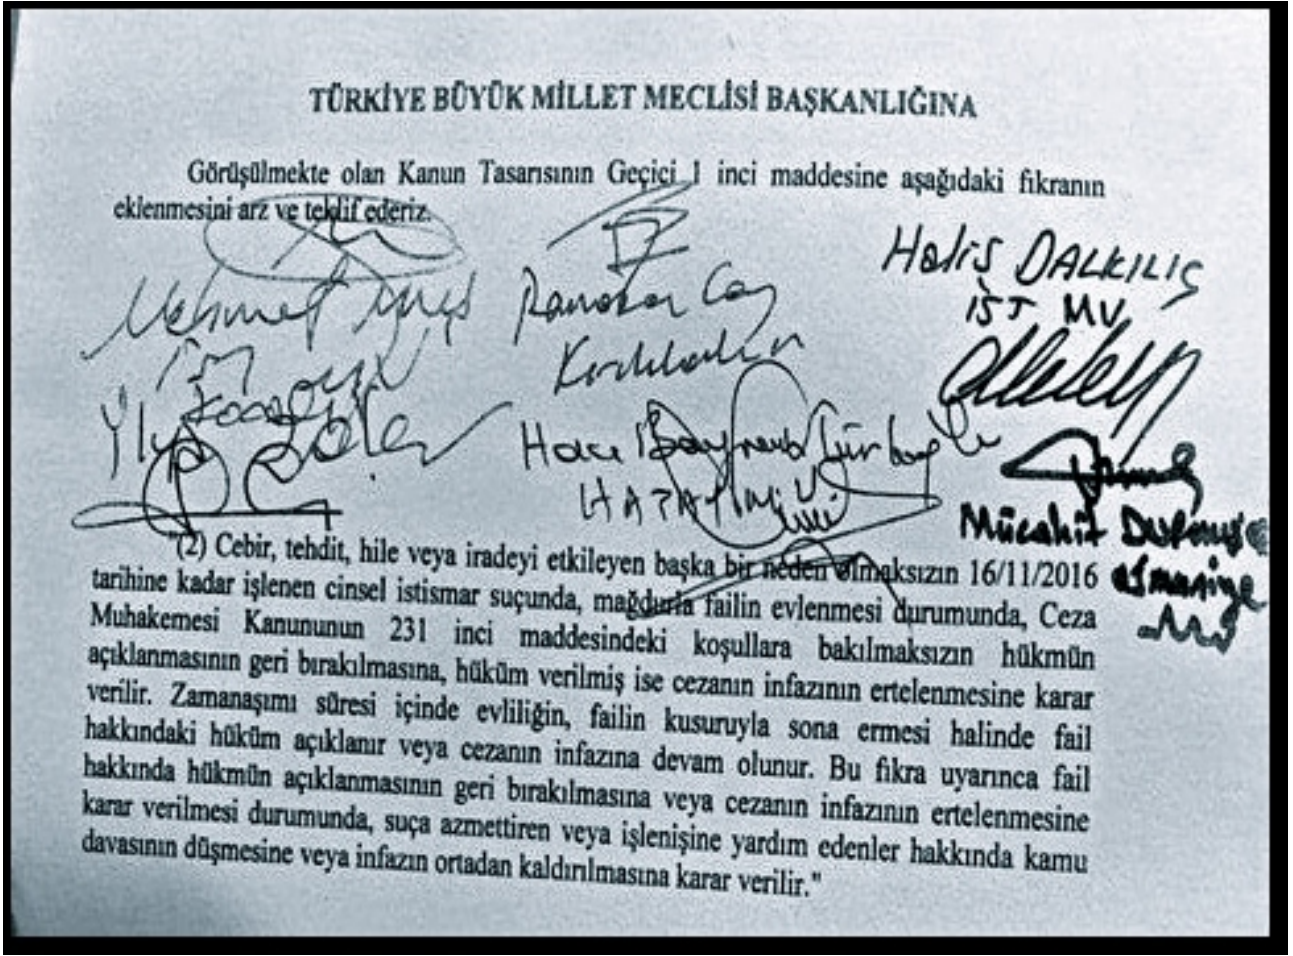 TÜRKİYE BÜYÜK MİLLET MECLİSİ BAŞKANLIĞINA
Görüşülmekte olan Kanun Tasarısının Geçici 1 inci maddesine aşağıdaki fıkranın
eklenmesini arz ve teklif ederiz.
Halis DALKILIÇ
İST MV
Mehmet
Ramazan Can
Kırıkkale
İlyas Şeker
Hacı Bayram Türkoğlu
HATAY
Mücahit Durmuş
Osmaniye
"(2) Cebir, tehdit, hile veya iradeyi etkileyen başka bir neden olmaksızın 16/11/2016
tarihine kadar işlenen cinsel istismar suçunda, mağdurla failin evlenmesi durumunda, Ceza
Muhakemesi Kanununun 231 inci maddesindeki koşullara bakılmaksızın hükmün
açıklanmasının geri bırakılmasına, hüküm verilmiş ise cezanın infazının ertelenmesine karar
verilir. Zamanaşımı süresi içinde evliliğin, failin kusuruyla sona ermesi halinde fail
hakkındaki hüküm açıklanır veya cezanın infazına devam olunur. Bu fıkra uyarınca fail
hakkında hükmün açıklanmasının geri bırakılmasına veya cezanın infazının ertelenmesine
karar verilmesi durumunda, suça azmettiren veya işlenişine yardım edenler hakkında kamu
davasının düşmesine veya infazın ortadan kaldırılmasına karar verilir."